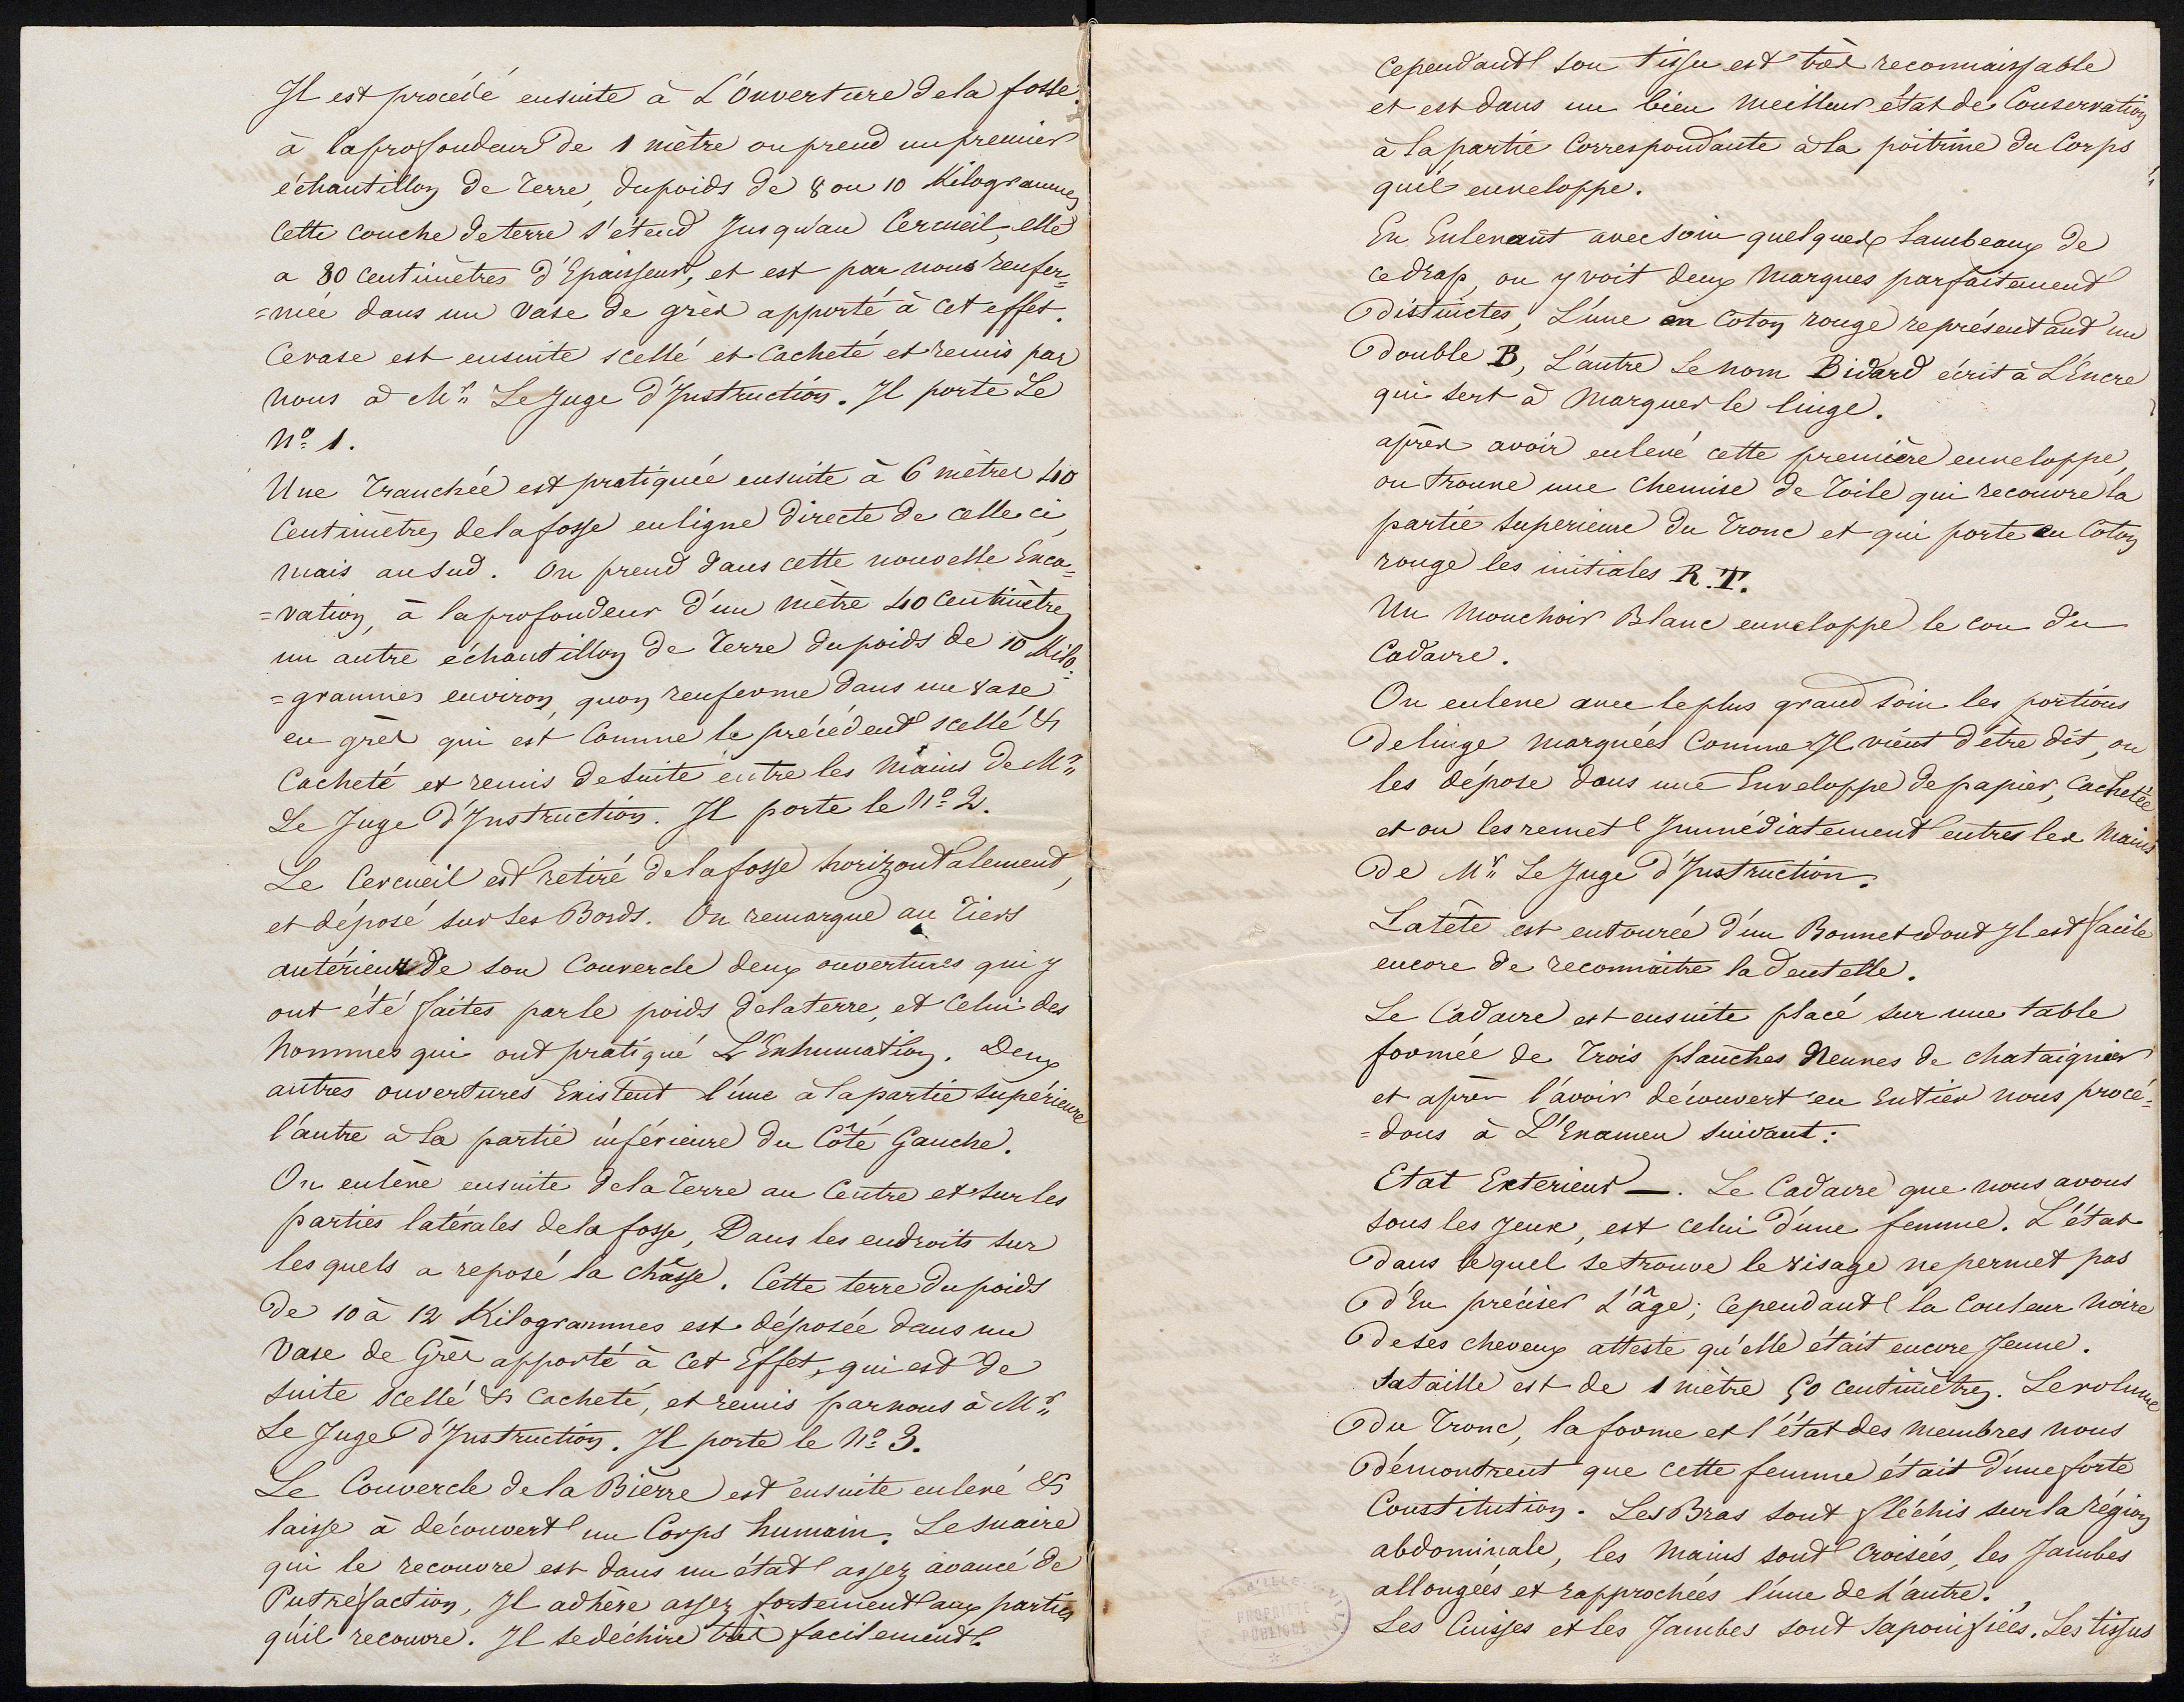 Il est procédé ensuite à L'Ouverture de la fosse.
à la profondeur de 1 mètre on prend un premier
échantillon de Terre, du poids de 8 ou 10 Kilogrammes
Cette couche de terre s'étend Jusqu'au Cercueil, elle
a 80 Centimètres d'Epaisseur, et est par nous renfer=
=mée dans un Vase de grès apporté à cet effet.
Ce vase est ensuite scellé et Cacheté et remis par
nous à Mr. Le Juge d'Instruction. Il porte Le
No. 1.
Une Tranchée est pratiquée ensuite à 6 mètres 40
Centimètres de la fosse en ligne directe de celle ci,
mais au Sud. On prend dans cette nouvelle Exca=
=vation, à la profondeur d'un mètre 40 Centimètres
un autre échantillon de Terre du poids de 10 Kilo=
=grammes environ, quon renferme dans un vase
en grès qui est Comme le précédent scellé &
Cacheté et remis de Suite entre les Mains de Mr.
Le Juge d'Instruction. Il porte le No. 2.
Le Cercueil est retiré de la fosse horizontalement,
et déposé sur ses Bords. On remarque au Tiers
antérieur de son Couvercle deux ouvertures qui y
ont été faites par le poids de la terre, et Celui des
hommes qui ont pratiqué L'Exhumation. Deux
autres ouvertures Existent l'une à la partie supérieure
l'autre à la partie inférieure du Côté Gauche.
On enlève ensuite de la Terre au Centre et sur les
parties latérales de la fosse, Dans les endroits sur
les quels a reposé la châsse. Cette terre du poids
de 10 à 12 Kilogrammes est déposée dans un
Vase de Grès apporté à Cet Effet, qui est de
suite scellé & Cacheté, et remis par nous à Mr.
Le Juge d'Instruction. Il porte le No. 3.
Le Couvercle de la Bierre est ensuite enlevé &
laisse à découvert un Corps humain. Le suaire
qui le recouvre est dans un état assez avancé de
Putréfaction, Il adhère assez fortement aux parties
qu'il recouvre. Il se déchire très facilement.
Cependant son tissu est très reconnaissable
et est dans un bien meilleur état de Conservation
à la partie Correspondante à la poitrine du Corps
quil enveloppe.
En Enlevant avec soin quelques Lambeaux de
ce drap, on y voit deux Marques parfaitement
distinctes, L'une en Coton rouge représentant un
double B, L'autre Le nom Bidard écrit à L'Encre
qui sert à Marquer le linge.
après avoir enlevé cette première enveloppe,
on trouve une Chemise de Toile qui recouvre la
partie Superieure du Tronc et qui porte en Coton
rouge les initiales R.T.
Un Mouchoir Blanc enveloppe le cou du
Cadavre.
On enlève avec le plus grand Soin les portions
de linge marquées Comme Il vient d'être dit, on
les dépose dans une Enveloppe de papier, Cachetée
et on les remet Immédiatement entres les Mains
de Mr. Le Juge d'Instruction.
La tête est entourée d'un Bonnet dont Il est facile
encore de reconnaitre la dentelle.
Le Cadavre est ensuite placé sur une table
formée de Trois planches Neuves de chataignier
et après l'avoir découvert en Entier nous procé=
=dons à L'Examen Suivant:
Etat Exterieur —. Le Cadavre que nous avons
sous les yeux, est celui d'une femme. L'état
dans lequel se trouve le visage ne permet pas
d'En préciser L'âge; Cependant la Couleur noire
de ses cheveux atteste qu'elle était encore Jeune.
Sa taille est de 1 mètre 50 Centimètres. Le volume
du Tronc, la forme et l'état des membres nous
démontrent que cette femme était d'une forte
Constitution. Les Bras sont fléchis sur la région
abdominale, les Mains sont Croisées, les Jambes
allongées et rapprochées l'une de L'autre.
Les Cuisses et les Jambes sont Saponifiées. Les tissus
PROPRIÉTÉ
PUBLIQUE